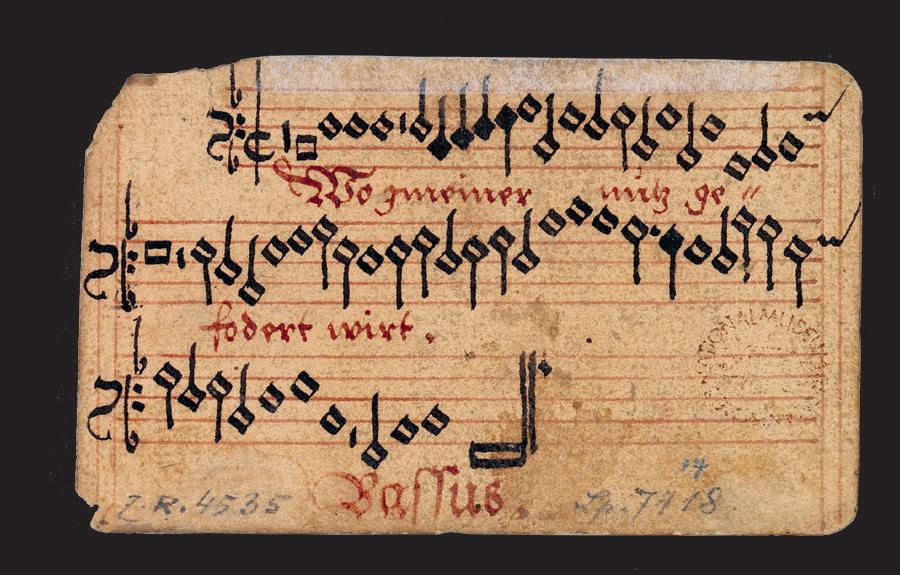 Wo gmeiner nutz ge〃
fodert wirt.
Bassus.
Z.R. 4535
14
Lp. 7418